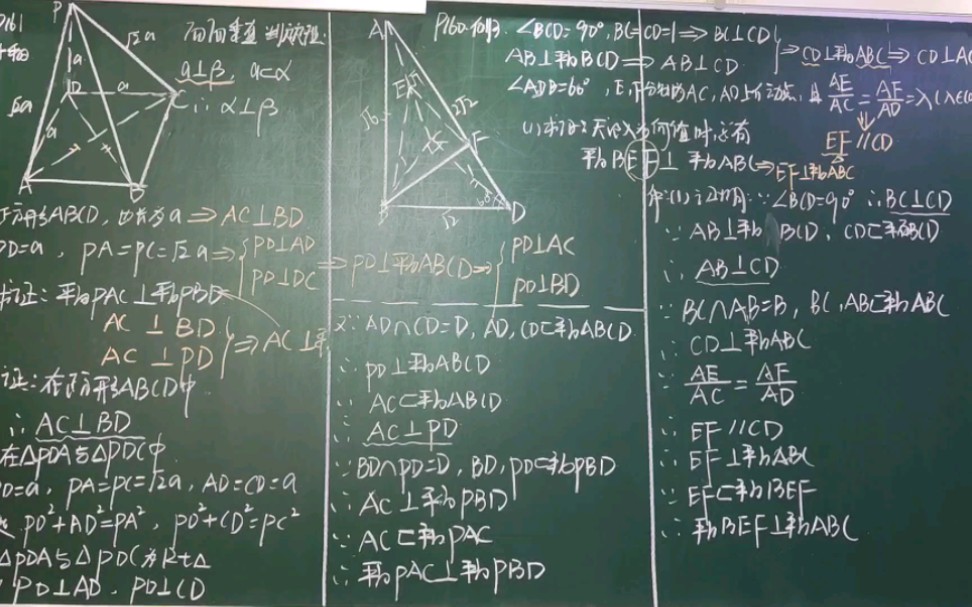 P161
面面垂直判定定理:
a⊥β, a⊂α
∴ α⊥β
P
√2a
a
D
a
C
√2a
a
A
B
正方形ABCD, 边长为a ⇒ AC⊥BD
PD=a, PA=PC=√2a ⇒ { PD⊥AD
PD⊥DC
⇒ PD⊥平面ABCD ⇒ { PD⊥AC
PD⊥BD
求证: 平面PAC⊥平面PBD
AC⊥BD
AC⊥PD } ⇒ AC⊥平
证: 在正方形ABCD中
∴ AC⊥BD
在△PDA与△PDC中
PD=a, PA=PC=√2a, AD=CD=a
PD²+AD²=PA², PD²+CD²=PC²
△PDA与△PDC为Rt△
PD⊥AD, PD⊥CD
A
E
√6
√2
F
B
60°
D
√2
又∵ AD∩CD=D, AD, CD⊂平面ABCD
∴ PD⊥平面ABCD
∵ AC⊂平面ABCD
∴ AC⊥PD
∵ BD∩PD=D, BD, PD⊂平面PBD
∴ AC⊥平面PBD
∵ AC⊂平面PAC
∴ 平面PAC⊥平面PBD
P160. 例3. ∠BCD=90°, BC=CD=1 ⇒ BC⊥CD
AB⊥平面BCD ⇒ AB⊥CD } ⇒ CD⊥平面ABC ⇒ CD⊥AC
∠ADB=60°, E, F分别为AC, AD上的动点, 且 AE/AC = AF/AD = λ(λ∈(
EF//CD
(1) 求证: 无论λ为何值时, 总有
平面BEF⊥平面ABC ⇒ EF⊥平面ABC
解: (1) 证明: ∵ ∠BCD=90° ∴ BC⊥CD
∵ AB⊥平面BCD, CD⊂平面BCD
∴ AB⊥CD
∵ BC∩AB=B, BC, AB⊂平面ABC
∴ CD⊥平面ABC
∵ AE/AC = AF/AD
∴ EF//CD
∴ EF⊥平面ABC
∵ EF⊂平面BEF
∴ 平面BEF⊥平面ABC